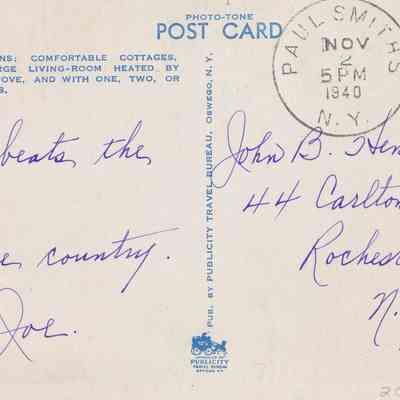 PHOTO-TONE
POST CARD
NS; COMFORTABLE COTTAGES,
RGE LIVING-ROOM HEATED BY
OVE, AND WITH ONE, TWO, OR
S.
PAUL SMITHS
NOV
2
5 PM
1940
N.Y.
beats the
e country.
Joe.
PUB. BY PUBLICITY TRAVEL BUREAU, OSWEGO, N. Y.
John B. Hen
44 Carlton
Rochest
N.
PUBLICITY
TRAVEL BUREAU
OSWEGO, N.Y.